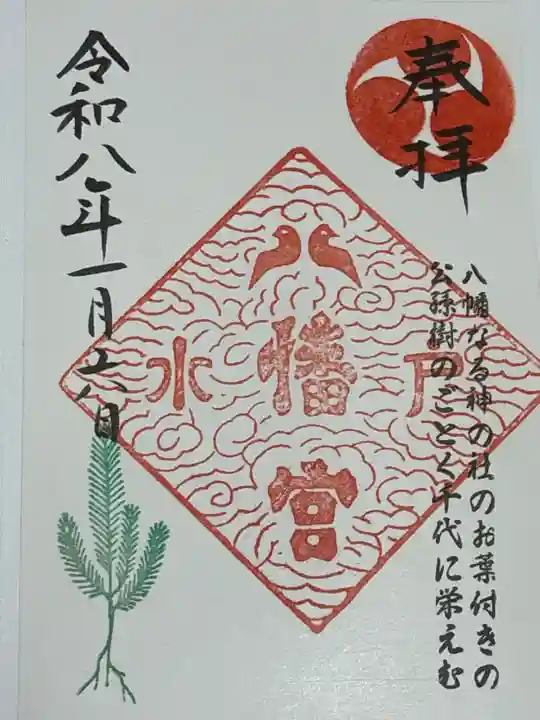 奉拝
八幡なる神の社のお葉付きの
公孫樹のごとく千代に栄えむ
水戸
八幡宮
令和八年一月六日